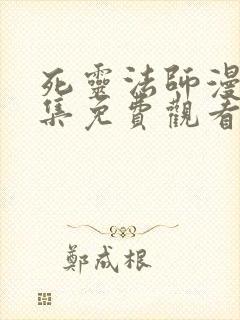 死靈法師漫
集免費觀看
鄭成根